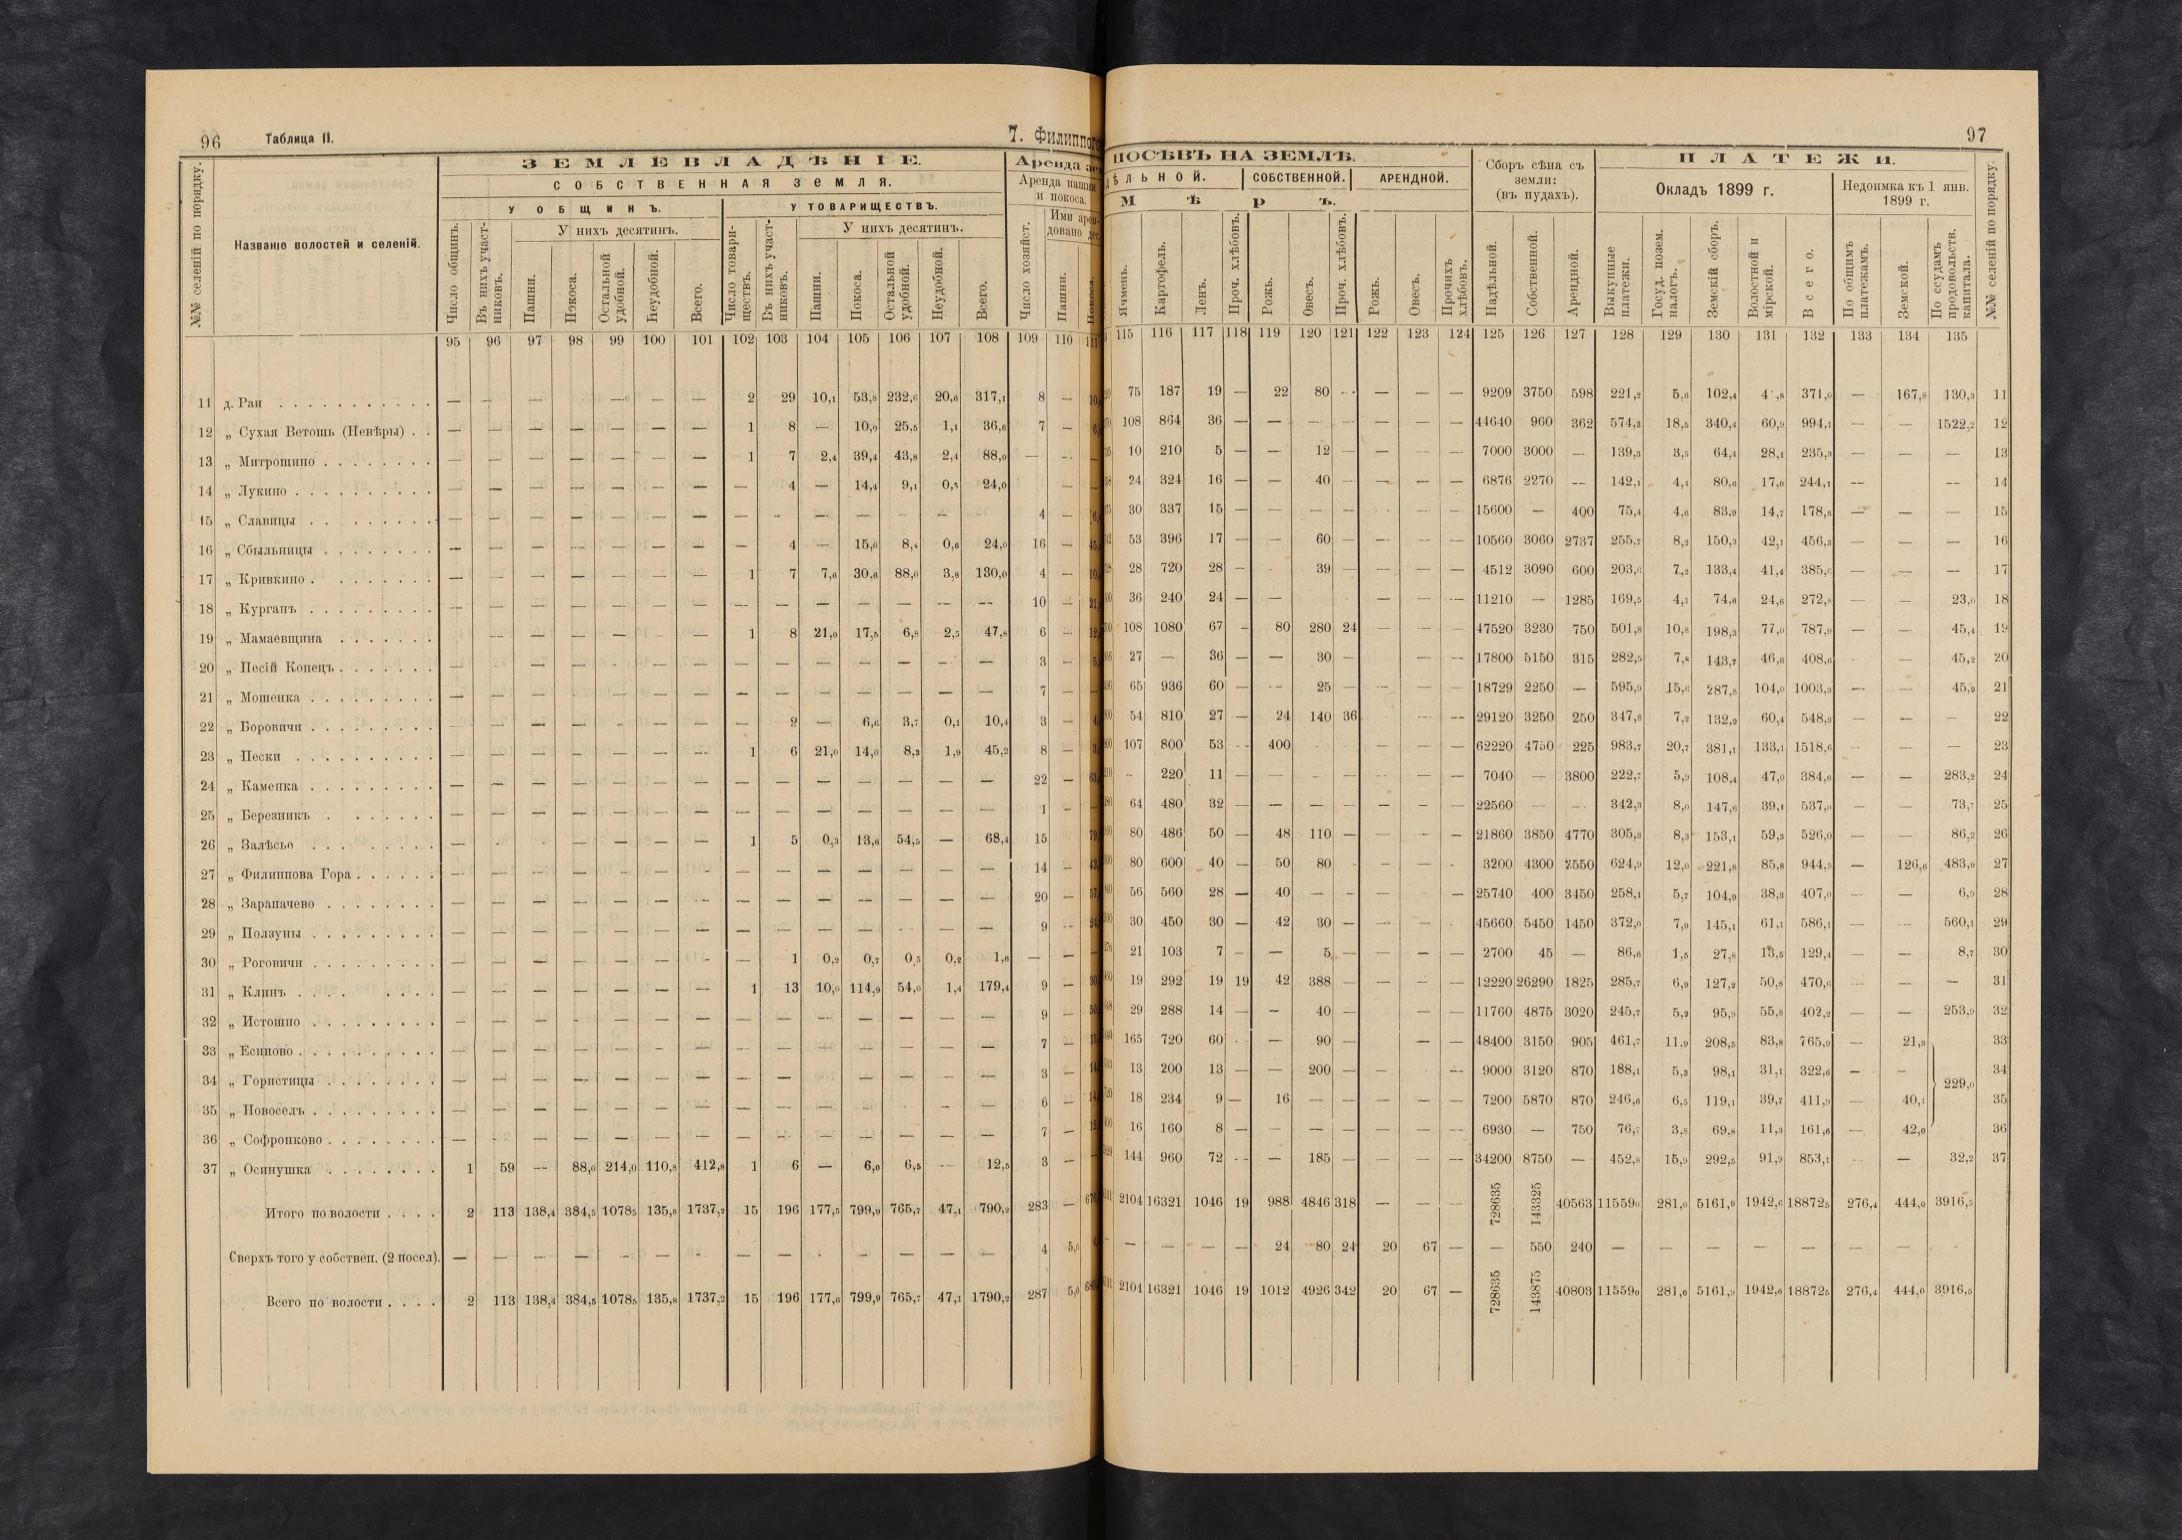 96 Таблица II. 7. Филиппого
ЗЕМЛЕВЛАДѢНІЕ.
СОБСТВЕННАЯ ЗЕМЛЯ.
У ОБЩИНЪ. У ТОВАРИЩЕСТВЪ.
У нихъ десятинъ. У нихъ десятинъ.
Аренда пашни и покоса.
№№ селеній по порядку. Названіе волостей и селеній. Число общинъ. Въ нихъ участниковъ. Пашни. Покоса. Остальной удобной. Неудобной. Всего. Число товариществъ. Въ нихъ участниковъ. Пашни. Покоса. Остальной удобной. Неудобной. Всего. Число хозяйст. Пашни.
95 96 97 98 99 100 101 102 103 104 105 106 107 108 109 110
11 д. Раи — — — — — — 2 29 10,1 53,8 232,6 20,6 317,1 8 —
12 „ Сухая Ветошь (Невѣры) — — — — — — — 1 8 — 10,0 25,5 1,1 36,6 7 —
13 „ Митрошино — — — — — — — 1 7 2,4 39,4 43,8 2,4 88,0 — —
14 „ Лукино — — — — — — — — 4 — 14,4 9,1 0,5 24,0 —
15 „ Славицы — — — — — — — — — — — — — — 4 —
16 „ Сбыльницы — — — — — — — — 4 — 15,0 8,4 0,6 24,0 16 —
17 „ Кривкино — — — — — — — 1 7 7,6 30,6 88,0 3,8 130,0 4 —
18 „ Курганъ — — — — — — — — — — — — — — 10 —
19 „ Мамаевщина — — — — — — — 1 8 21,0 17,5 6,8 2,5 47,8 6 —
20 „ Песій Конецъ — — — — — — — — — — — — — 3 —
21 „ Мошенка — — — — — — — — — — — — — — 7 —
22 „ Боровичи — — — — — — — — 2 — 6,6 3,7 0,1 10,4 3 —
23 „ Пески — — — — — — — 1 6 21,0 14,0 8,3 1,9 45,2 8 —
24 „ Каменка — — — — — — — — — — — — — — 22 —
25 „ Березникъ — — — — — — — — — — — — — — 1 —
26 „ Залѣсье — — — — — — 1 5 0,3 13,6 54,5 — 68,4 15
27 „ Филиппова Гора — — — — — — — — — — — — — — 14 —
28 „ Зарапачево — — — — — — — — — — — — — — 20 —
29 „ Ползуны — — — — — — — — — — — — — — 9 —
30 „ Роговичи — — — — — — — — 1 0,2 0,7 0,5 0,2 1,6 — —
31 „ Клинъ — — — — — — — 1 13 10,0 114,9 54,0 1,4 179,4 9 —
32 „ Истошно — — — — — — — — — — — — — — 9 —
33 „ Есипово — — — — — — — — — — — — — — 7 —
34 „ Гористицы — — — — — — — — — — — — — — 3 —
35 „ Новоселъ — — — — — — — — — — — — — — 6 —
36 „ Софронково — — — — — — — — — — — — — — 7 —
37 „ Осинушка 1 59 — 88,0 214,0 110,8 412,8 1 6 — 6,0 6,5 — 12,5 3 —
Итого по волости 2 113 138,4 384,5 1078,5 135,8 1737,2 15 196 177,5 799,9 765,7 47,1 790,2 283 —
Сверхъ того у собствен. (2 посел). — — — — — — — — — — — — — — 4 5,0
Всего по волости 2 113 138,4 384,5 1078,5 135,8 1737,2 15 196 177,6 799,9 765,7 47,1 1790,2 287 5,0
97
ПОСѢВЪ НА ЗЕМЛѢ. Сборъ сѣна съ земли: (въ пудахъ). ПЛАТЕЖИ.
СОБСТВЕННОЙ. АРЕНДНОЙ. Окладъ 1899 г. Недоимка къ 1 янв. 1899 г.
М ѣ р ъ.
Ячмень. Картофель. Ленъ. Проч. хлѣбовъ. Рожь. Овесъ. Проч. хлѣбовъ. Рожь. Овесъ. Прочихъ хлѣбовъ. Надѣльной. Собственной. Арендной. Выкупные платежи. Госуд. позем. налогъ. Земскій сборъ. Волостной и мірской. Всего. По общимъ платежамъ. Земской. По ссудамъ продовольств. капитала. №№ селеній по порядку.
115 116 117 118 119 120 121 122 123 124 125 126 127 128 129 130 131 132 133 134 135
75 187 19 — 22 80 — — — — 9209 3750 598 221,2 5,6 102,4 371,0 — 167,8 130,3 11
108 864 36 — — — — — — — 44640 960 362 574,3 18,5 340,4 60,9 994,1 — — 1522,2 12
10 210 5 — — 12 — — — — 7000 3000 — 139,3 3,5 64,4 28,1 235,3 — — — 13
24 324 16 — — 40 — — — — 6876 2270 — 142,1 4,4 80,6 17,0 244,1 — — 14
30 337 15 — — — — — — — 15600 — 400 75,4 4,6 83,9 14,7 178,6 — — — 15
53 396 17 — — 60 — — — — 10560 3060 2737 255,7 8,2 150,3 42,1 456,3 — — — 16
28 720 28 — 39 — — — — 4512 3090 600 203,6 7,2 133,4 41,4 385,6 — — — 17
36 240 24 — — — — — — — 11210 — 1285 169,5 4,1 74,6 24,6 272,8 — — 23,0 18
108 1080 67 — 80 280 24 — — — 47520 3230 750 501,8 10,8 198,3 77,0 787,9 — — 45,4 19
27 — 36 — — 30 — — — — 17800 5150 315 282,5 7,8 143,7 46,6 408,6 — — 45,2 20
65 936 60 — — 25 — — — — 18729 2250 — 595,9 15,6 287,8 104,0 1003,3 — — 45,9 21
54 810 27 — 24 140 36 — — 29120 3250 250 347,8 7,2 132,9 60,4 548,3 — — — 22
107 800 53 — 400 — — — 62220 4750 225 983,7 20,7 381,1 133,1 1518,6 — — — 23
— 220 11 — — — — — — — 7040 — 3800 222,7 5,9 108,4 47,0 384,0 — — 283,2 24
64 480 32 — — — — — — — 22560 — — 342,3 8,0 147,6 39,1 537,0 — — 73,7 25
80 486 50 — 48 110 — — — — 21860 3850 4770 305,3 8,3 153,1 59,3 526,0 — — 86,2 26
80 600 40 — 50 80 — — — 3200 4300 2550 624,9 12,0 221,8 85,8 944,5 — 126,6 483,9 27
56 560 28 — 40 — — — — 25740 400 3450 258,1 5,7 104,9 38,3 407,0 — — 6,9 28
30 450 30 — 42 30 — — — — 45660 5450 1450 372,0 7,9 145,1 61,1 586,1 — — 560,1 29
21 103 7 — — 5 — — — — 2700 45 — 86,6 1,5 27,8 13,5 129,4 — — 8,7 30
19 292 19 19 42 388 — — — — 12220 26290 1825 285,7 6,9 127,2 50,8 470,6 — — — 31
29 288 14 — — 40 — — — — 11760 4875 3020 245,7 5,2 95,9 55,8 402,2 — — 253,9 32
165 720 60 — — 90 — — — 48400 3150 905 461,7 11,9 208,5 83,8 765,9 — 21,3 33
13 200 13 — — 200 — — — — 9000 3120 870 188,1 5,3 98,1 31,1 322,6 — — 229,0 34
18 234 9 — 16 — — — — — 7200 5870 870 246,6 6,5 119,1 39,7 411,9 — 40,1 35
16 160 8 — — — — — — — 6930 — 750 76,7 3,8 69,8 11,3 161,6 — 42,0 36
144 960 72 — — 185 — — — — 34200 8750 — 452,8 15,9 292,5 91,9 853,1 — — 32,2 37
2104 16321 1046 19 988 4846 318 — — — 728635 143325 40563 11559,0 281,0 5161,9 1942,6 18872,5 276,4 444,0 3916,5
— — — — 24 80 24 20 67 — — 550 240 — — — — — — — —
2104 16321 1046 19 1012 4926 342 20 67 — 728635 143875 40803 11559,0 281,0 5161,9 1942,6 18872,5 276,4 444,0 3916,5